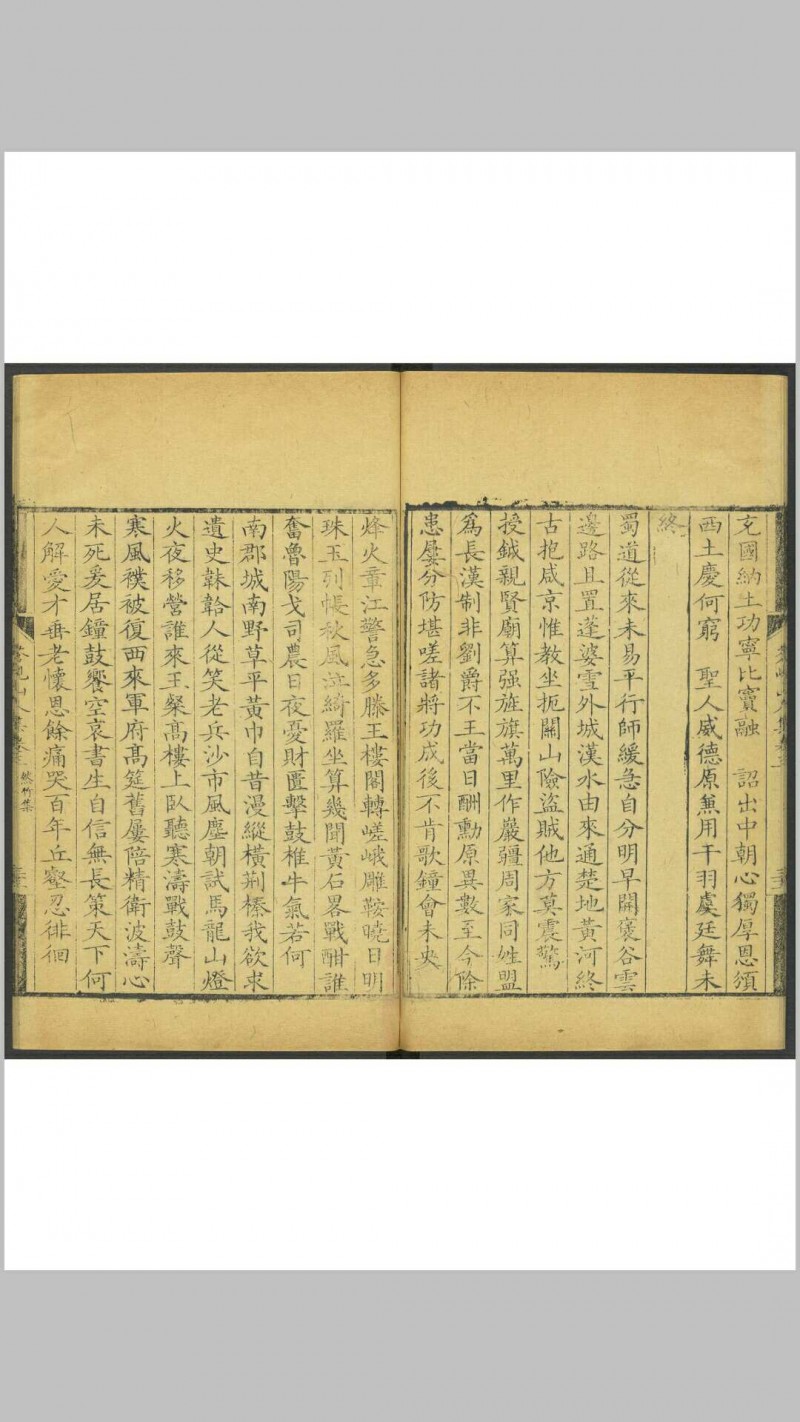 充國納土功寧比竇融　詔出中朝心獨厚恩須
西土慶何窮　聖人威德原兼用干羽虞廷舞未
終
蜀道從來未易平行師緩急自分明早開褒谷雲
邊路且置蓬婆雪外城漢水由來通楚地黃河終
古抱咸京惟教坐扼關山險盜賊他方莫震驚
授鉞親賢廟算强旌旗萬里作嚴疆周家同姓盟
爲長漢制非劉爵不王當日酬勳原異數至今餘
患屢分防堪嗟諸將功成後不肯歌鐘會未央
烽火章江警急多滕王樓閣轉嵯峨雕鞍曉日明
珠玉列帳秋風泣綺羅坐算幾聞黃石畧戰酣誰
奮魯陽戈司農日夜憂財匱擊鼓椎牛氣若何
南郡城南野草平黃巾自昔漫縱橫荆榛我欲求
遺史韎韐人從笑老兵沙市風塵朝試馬龍山燈
火夜移營誰來王粲髙樓上臥聽寒濤戰鼓聲
寒風襆被復西來軍府髙筵舊屢陪精衛波濤心
未死爰居鐘鼓饗空哀書生自信無長策天下何
人解愛才垂老懷恩餘痛哭百年丘壑忍徘徊